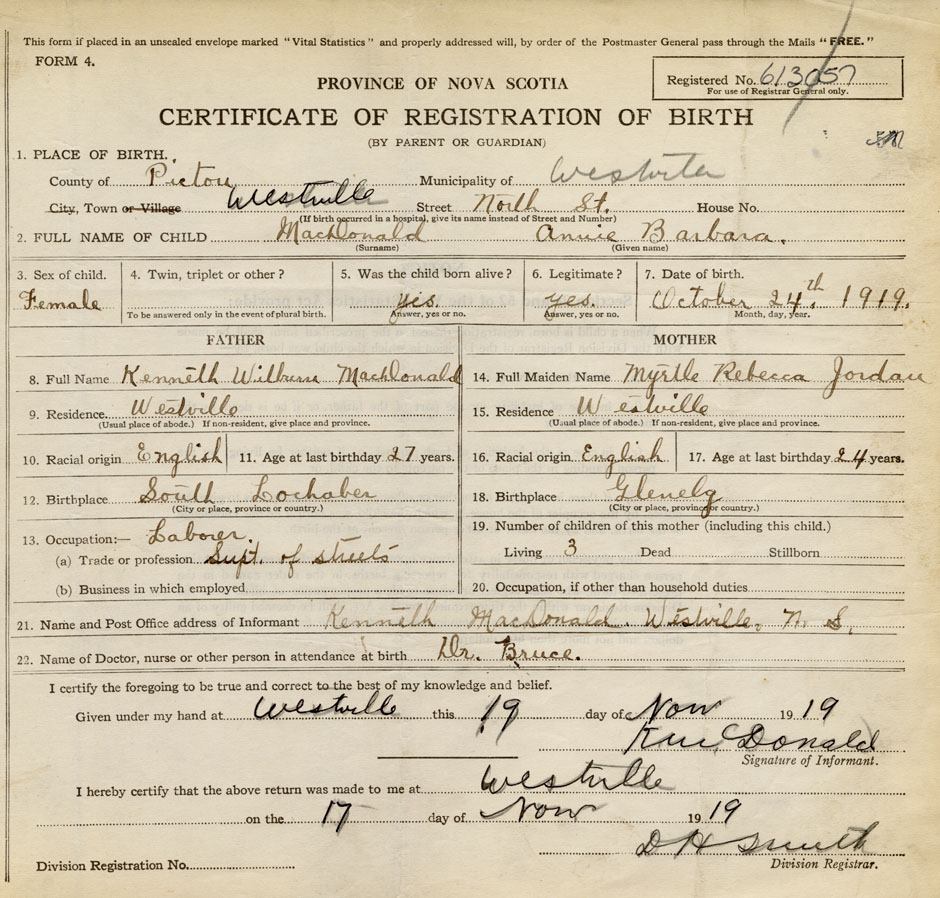 This form if placed in an unsealed envelope marked "Vital Statistics" and properly addressed will, by order of the Postmaster General pass through the Mails "FREE."
FORM 4.
Registered No. 613057
For use of Registrar General only.
PROVINCE OF NOVA SCOTIA
CERTIFICATE OF REGISTRATION OF BIRTH
(BY PARENT OR GUARDIAN)
1. PLACE OF BIRTH.
County of Pictou Municipality of
City, Town or Village Westville Street North St. House No.
(If birth occurred in a hospital, give its name instead of Street and Number)
2. FULL NAME OF CHILD MacDonald Annie Barbara.
(Surname) (Given name)
3. Sex of child. 4. Twin, triplet or other? 5. Was the child born alive? 6. Legitimate? 7. Date of birth.
Female yes. yes. October 24th. 1919.
To be answered only in the event of plural birth. Answer, yes or no. Answer, yes or no. Month, day, year.
FATHER MOTHER
8. Full Name Kenneth Wilburn MacDonald 14. Full Maiden Name Myrtle Rebecca Jordan
9. Residence. Westville 15. Residence Westville
(Usual place of abode.) If non-resident, give place and province. (Usual place of abode.) If non-resident, give place and province.
10. Racial origin English 11. Age at last birthday 27 years. 16. Racial origin English 17. Age at last birthday 24 years.
12. Birthplace South Lochaber 18. Birthplace Glenelg
(City or place, province or country.) (City or place, province or country.)
13. Occupation:— Laborer. 19. Number of children of this mother (including this child.)
(a) Trade or profession Supt. of streets Living 3 Dead Stillborn
(b) Business in which employed 20. Occupation, if other than household duties
21. Name and Post Office address of Informant Kenneth MacDonald. Westville. N. S.
22. Name of Doctor, nurse or other person in attendance at birth Dr. Bruce.
I certify the foregoing to be true and correct to the best of my knowledge and belief.
Given under my hand at Westville this 19 day of Nov 19 19
K McDonald
Signature of Informant.
I hereby certify that the above return was made to me at Westville
on the 17 day of Nov 19 19
D H Smith
Division Registration No. Division Registrar.